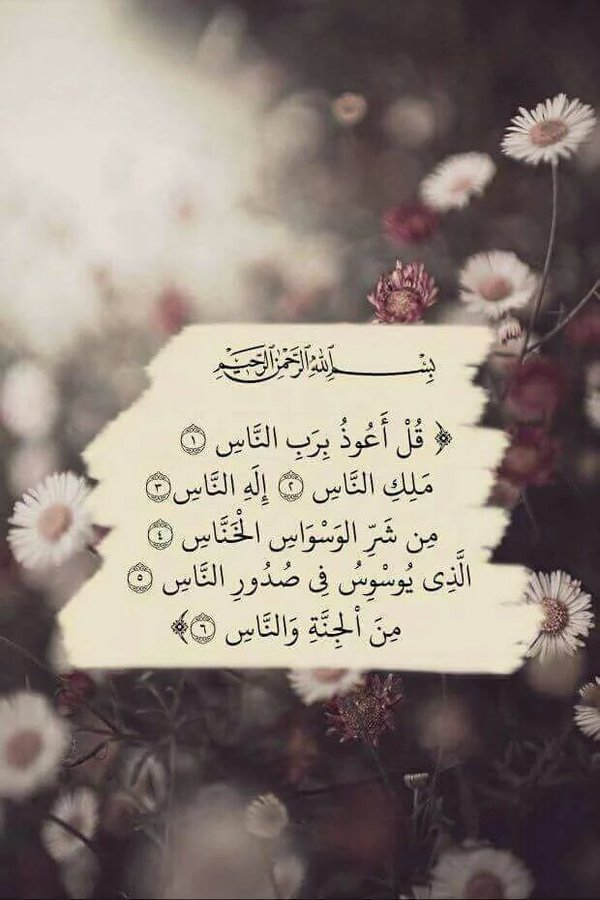 بِسْمِ ٱللَّهِ ٱلرَّحْمَٰنِ ٱلرَّحِيمِ
﴿ قُلْ أَعُوذُ بِرَبِ النَّاسِ ١
مَلِكِ النَّاسِ ٢ إِلَهِ النَّاسِ ٣
مِن شَرِّ الوَسْوَاسِ الْخَنَّاسِ ٤
الَّذِى يُوسْوِسُ فِى صُدُورِ النَّاسِ ٥
مِنَ الْجِنَّةِ وَالنَّاسِ ٦ ﴾